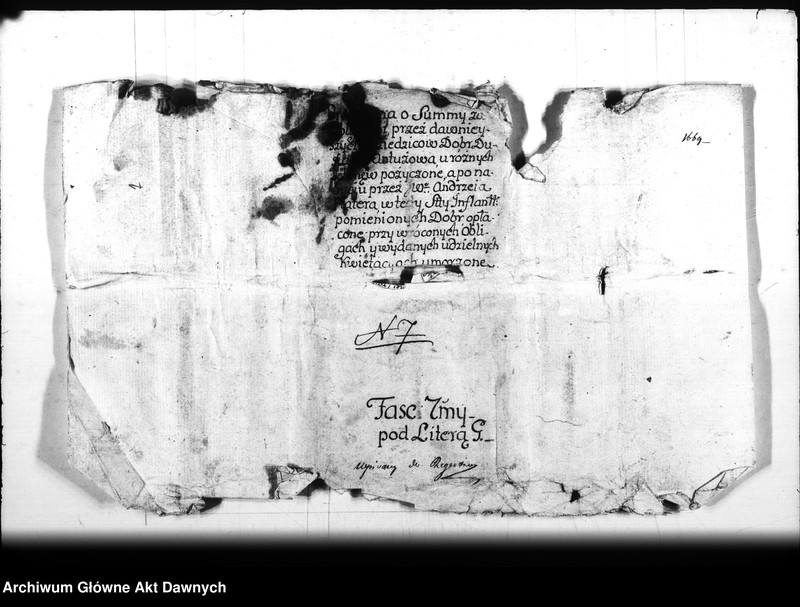 a o Summy
przez dawniey-
Dziedzicow Dobr Du-
Ottużowa, u różnych
pożyczone, a po na-
byciu przez Andrzeia
w teży Stty Inflantt:
pomienionych Dobr opła-
cone przy wróconych Obli-
gach y wydanych udzielnych
kwietacyach umorzone.
1669
N 7
Fasc: 7my
pod Literą G.
Wpisany do Regestru
Archiwum Główne Akt Dawnych